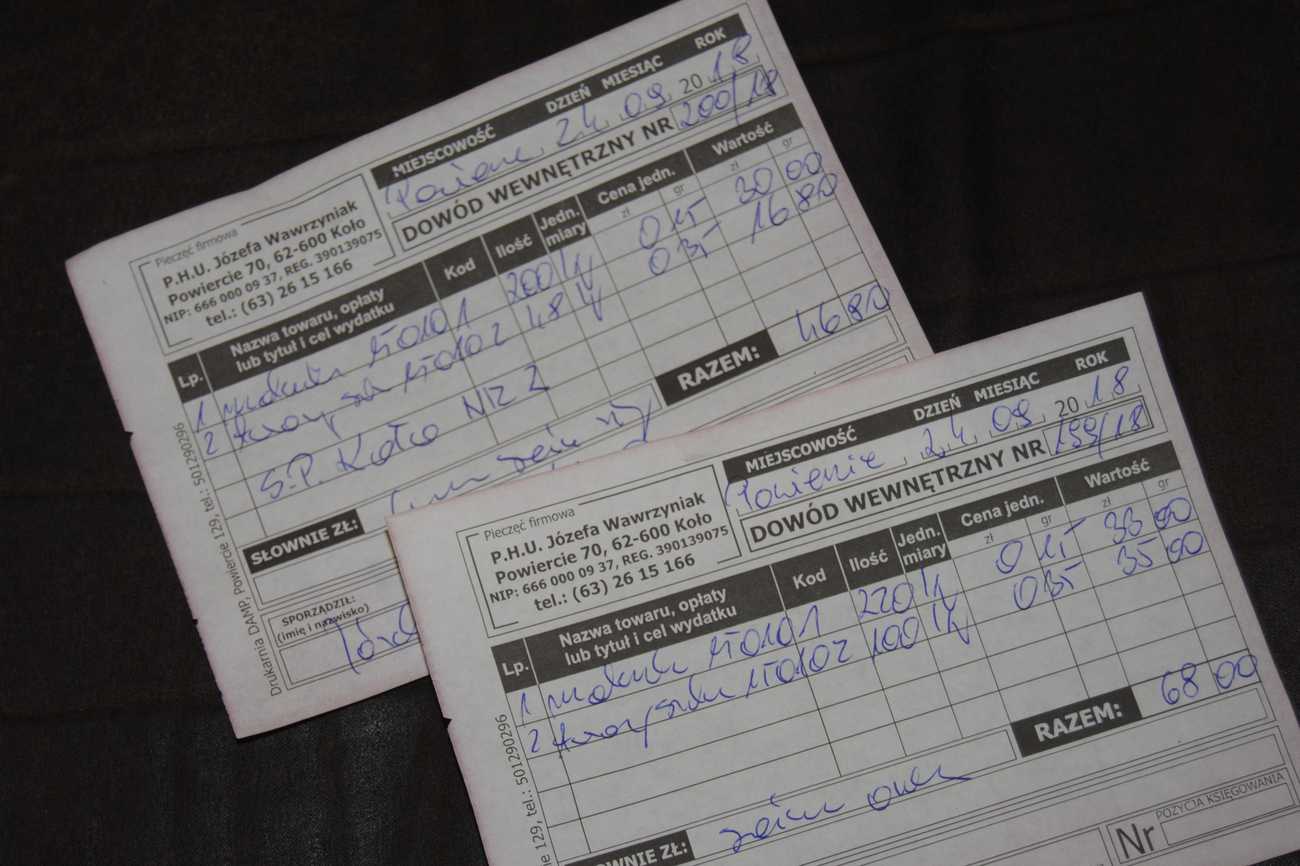 MIEJSCOWOŚĆ DZIEŃ MIESIĄC ROK
24 09 2018
DOWÓD WEWNĘTRZNY NR 200/18
Pieczęć firmowa
P.H.U. Józefa Wawrzyniak
Powiercie 70, 62-600 Koło
NIP: 666 000 09 37, REG. 390139075
tel.: (63) 26 15 166
Lp. Nazwa towaru, opłaty lub tytuł i cel wydatku Kod Ilość Jedn. miary Cena jedn. zł gr Wartość zł gr
1 200 0 15 30 00
2 48 0 35 16 80
S.P. Koło NR 2
RAZEM: 46 80
SŁOWNIE ZŁ:
SPORZĄDZIŁ:
(imię i nazwisko)
Drukarnia DAMP, Powiercie 129, tel.: 501290296
MIEJSCOWOŚĆ DZIEŃ MIESIĄC ROK
24 09 2018
DOWÓD WEWNĘTRZNY NR 199/18
Pieczęć firmowa
P.H.U. Józefa Wawrzyniak
Powiercie 70, 62-600 Koło
NIP: 666 000 09 37, REG. 390139075
tel.: (63) 26 15 166
Lp. Nazwa towaru, opłaty lub tytuł i cel wydatku Kod Ilość Jedn. miary Cena jedn. zł gr Wartość zł gr
1 220 0 15 33 00
2 100 0 35 35 00
RAZEM: 68 00
WNIE ZŁ:
Nr POZYCJA KSIĘGOWANIA
e 129, tel.: 501290296